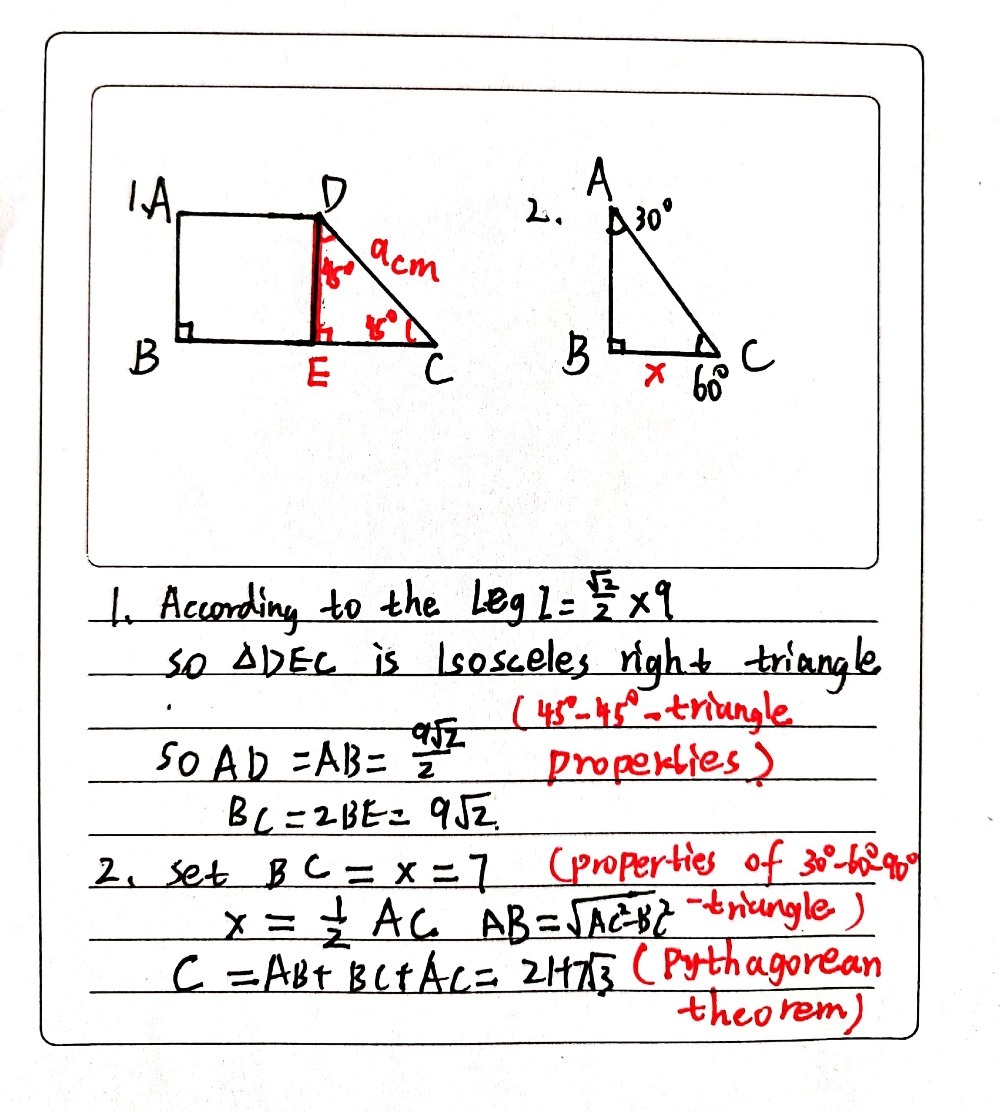 1. A D
9cm
45° 45°
B E C
2. A
30°
B C
x 60°
1. According to the Leg l = √2/2 × 9
so △DEC is Isosceles right triangle
(45°-45°-triangle
so AD = AB = 9√2/2 properties)
BC = 2BE = 9√2.
2. set BC = x = 7 (properties of 30°-60°-90°
x = 1/2 AC AB = √AC²-BC² -triangle)
C = AB + BC + AC = 21+7√3 (Pythagorean
theorem)